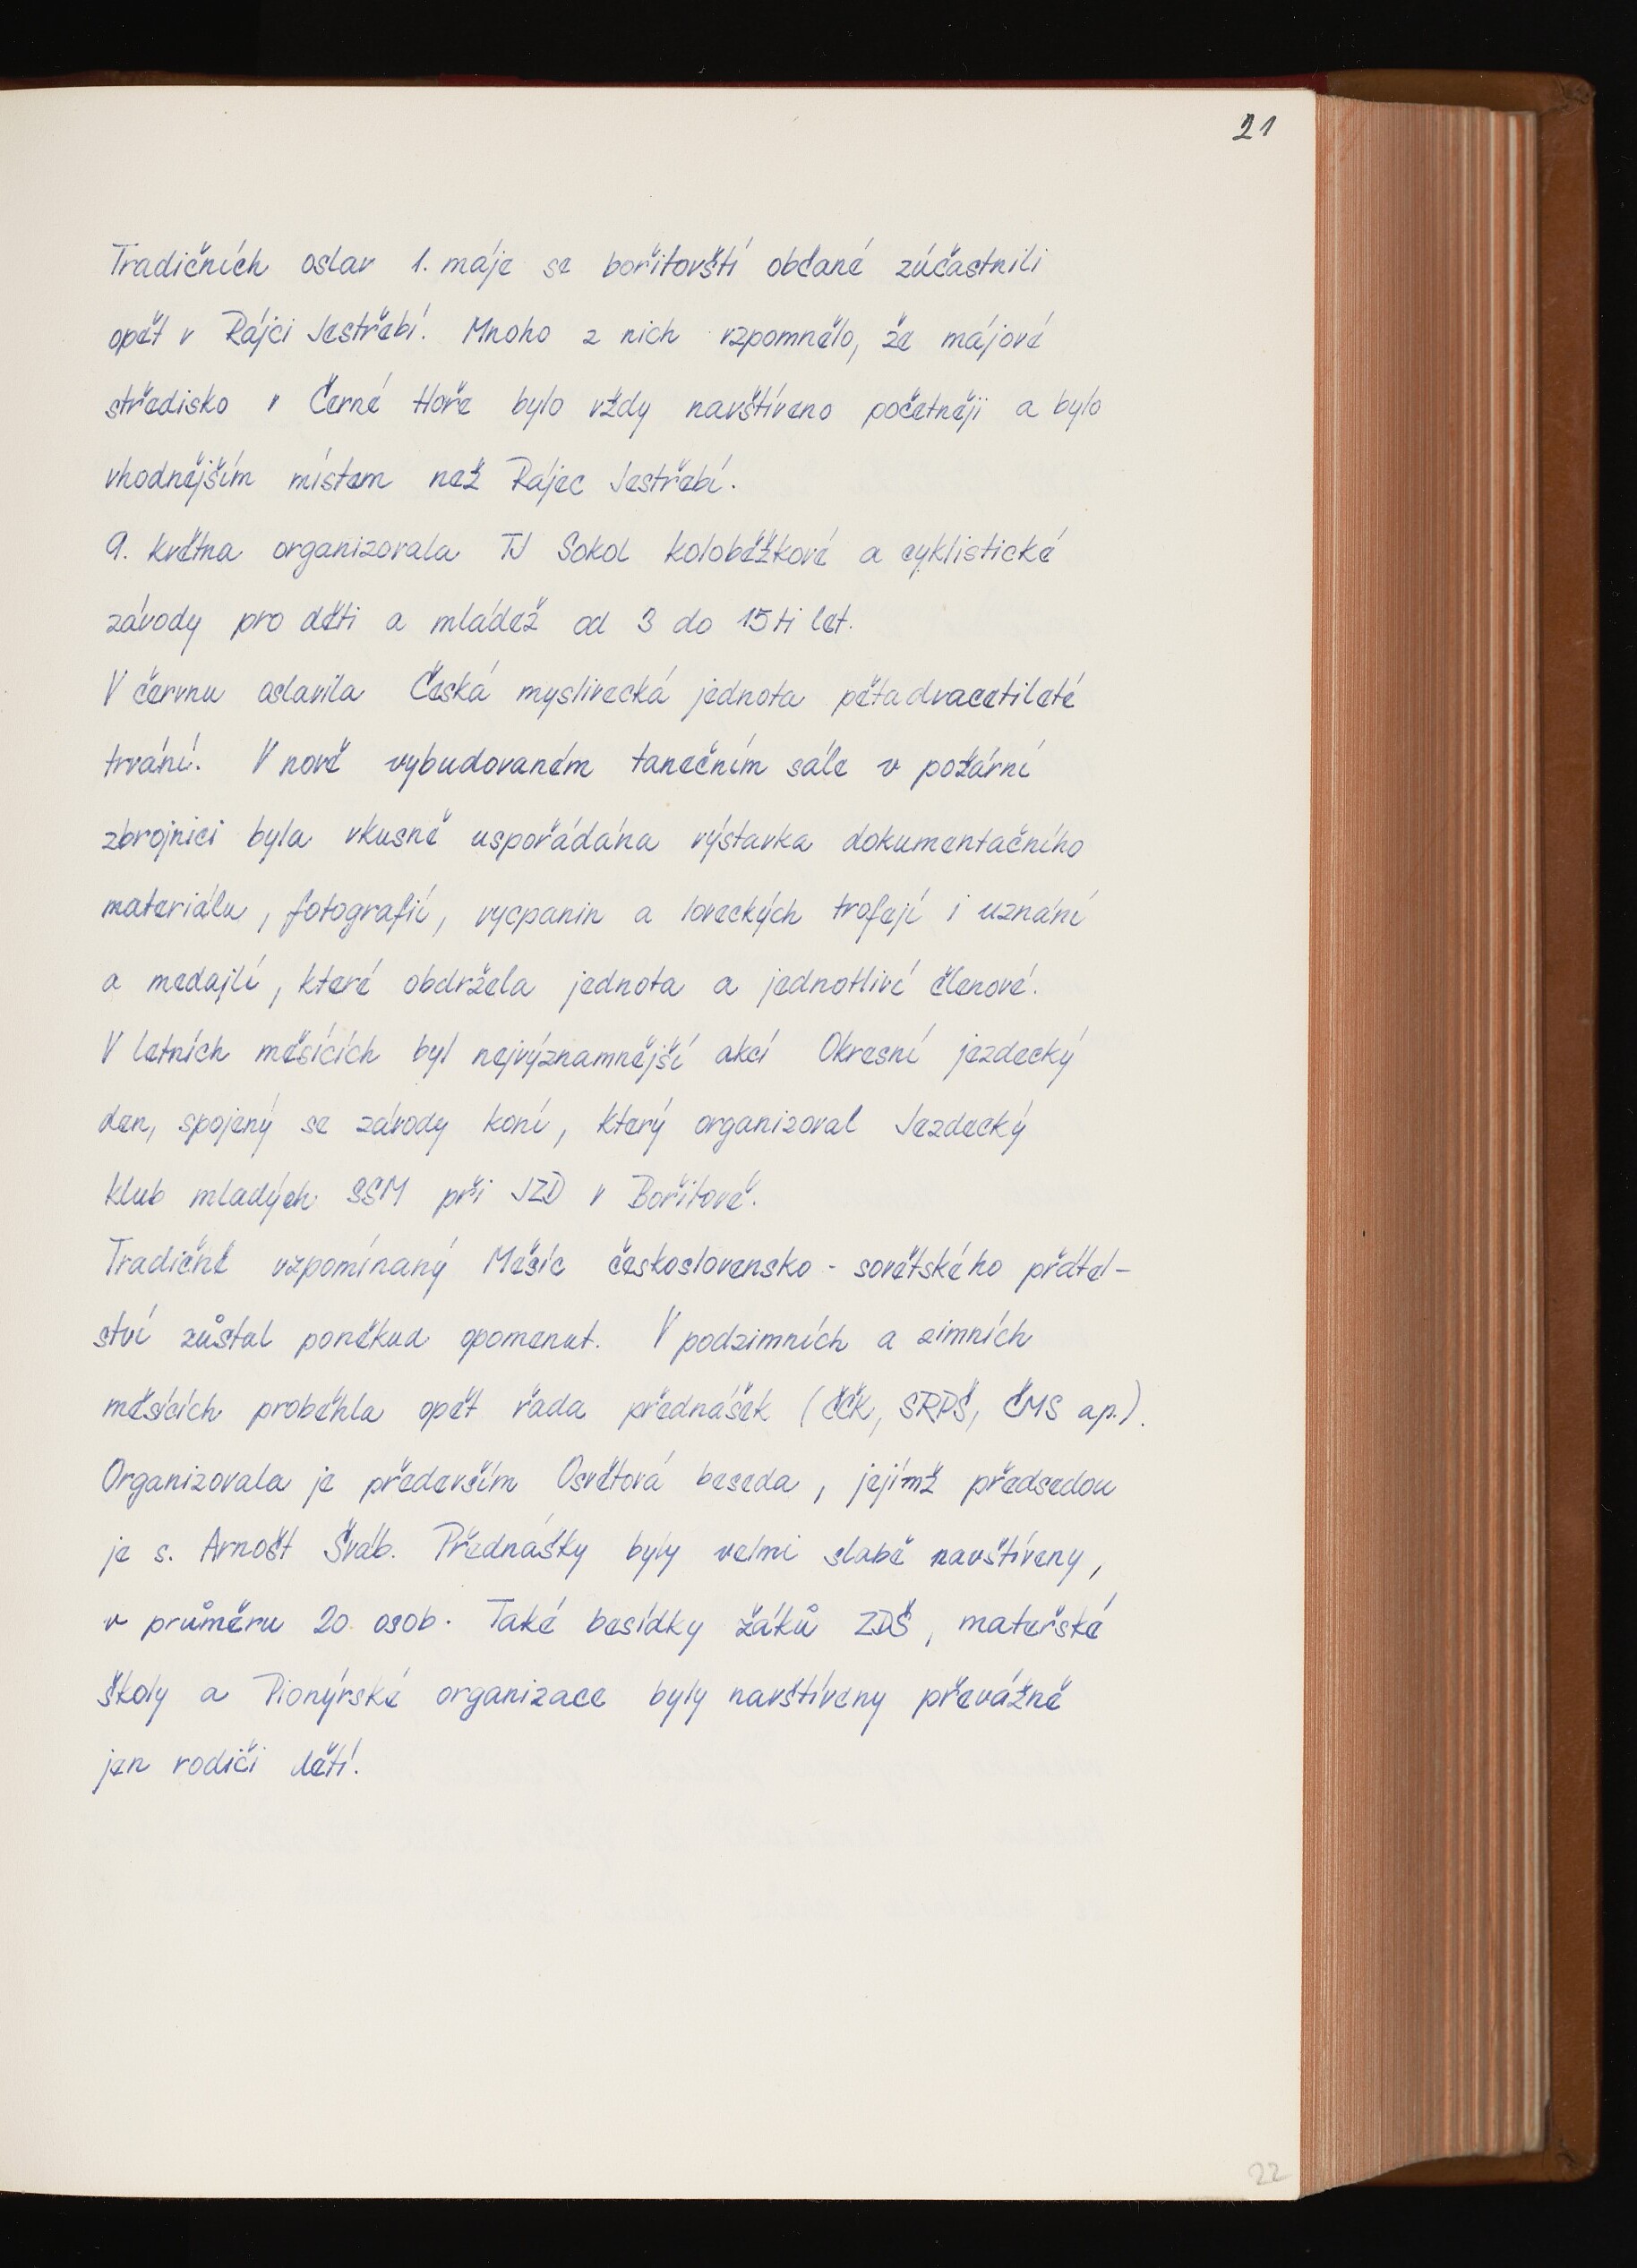 21
Tradičních oslav 1. máje se bořitovští občané zúčastnili
opět v Rájci Jestřebí. Mnoho z nich vzpomnělo, že májové
středisko v Černé Hoře bylo vždy navštíveno početněji a bylo
vhodnějším místem než Rájec Jestřebí.
9. května organizovala TJ Sokol koloběžkové a cyklistické
závody pro děti a mládež od 3 do 15ti let.
V červnu oslavila Česká myslivecká jednota pětadvacetileté
trvání. V nově vybudovaném tanečním sále v požární
zbrojnici byla vkusně uspořádána výstavka dokumentačního
materiálu, fotografií, vycpanin a loveckých trofejí i uznání
a medajlí, které obdržela jednota a jednotliví členové.
V letních měsících byl nejvýznamnější akcí Okresní jezdecký
den, spojený se závody koní, který organizoval Jezdecký
klub mladých SSM při JZD v Bořitově.
Tradičně vzpomínaný Měsíc československo - sovětského přátel-
ství zůstal poněkud opomenut. V podzimních a zimních
měsících proběhla opět řada přednášek (ČČK, SRPŠ, ČMS ap.).
Organizovala je především Osvětová beseda, jejímž předsedou
je s. Arnošt Šváb. Přednášky byly velmi slabě navštíveny,
v průměru 20 osob. Také besídky žáků ZDŠ, mateřské
školy a Pionýrské organizace byly navštíveny převážně
jen rodiči dětí.
22